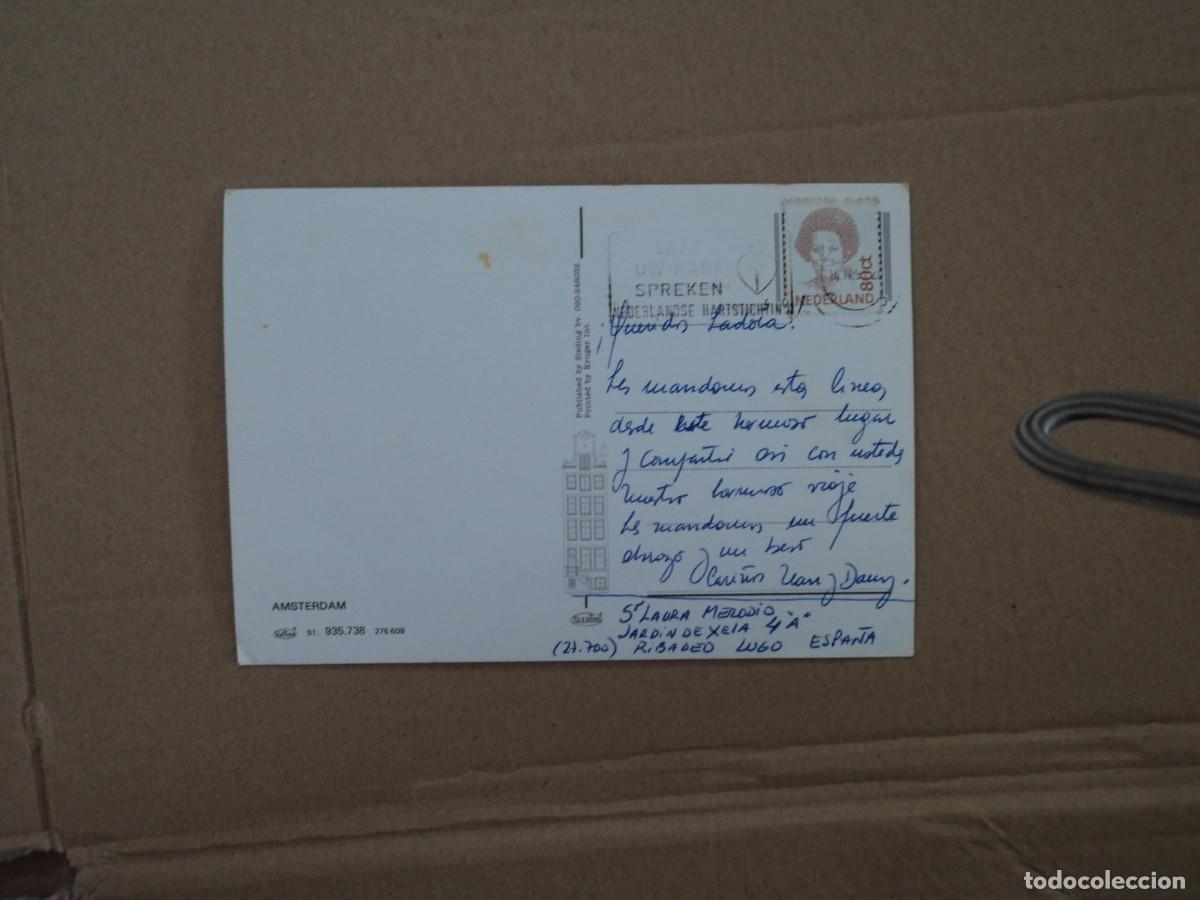 LAAT
UW HART
SPREKEN
NEDERLANDSE HARTSTICHTING
80ct
NEDERLAND
Published by Sleding bv. 020-248032
Printed by Kruger Int.
Queridos
Les mandamos estas lineas
desde este hermoso lugar
y compartir asi con ustedes
nuestro hermoso viaje
Les mandamos un fuerte
abrazo y un beso
Cariños y Dany.
Sª LAURA MERODIO
JARDIN DE XELA 4 "A"
(27.700) RIBADEO LUGO ESPAÑA
AMSTERDAM
51. 935.738 275 609
todocoleccion